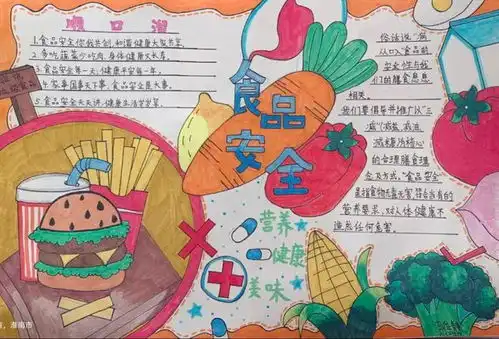 顺口溜
1.食品安全你我共创,和谐健康大家共享。
2.多吃蔬菜少吃肉,身体健康又长寿。
3.食品安全每一天,健康平安每一年。
4.国事家事天下事,食品安全是大事。
5.食品安全天天讲,健康生活步步棠。
食品
安全
营养
健康
美味
俗话说“病
从口入”食品的
安全性与我
们的膳食息息
相关。
我们要倡导并推广以“三
减”(减盐、减油、
减糖为核心
的合理膳食理
念及方式。“食品安全”
是指食物无毒、无害,符合当有的
营养要求,对人体健康不
造成任何危害。
海南市